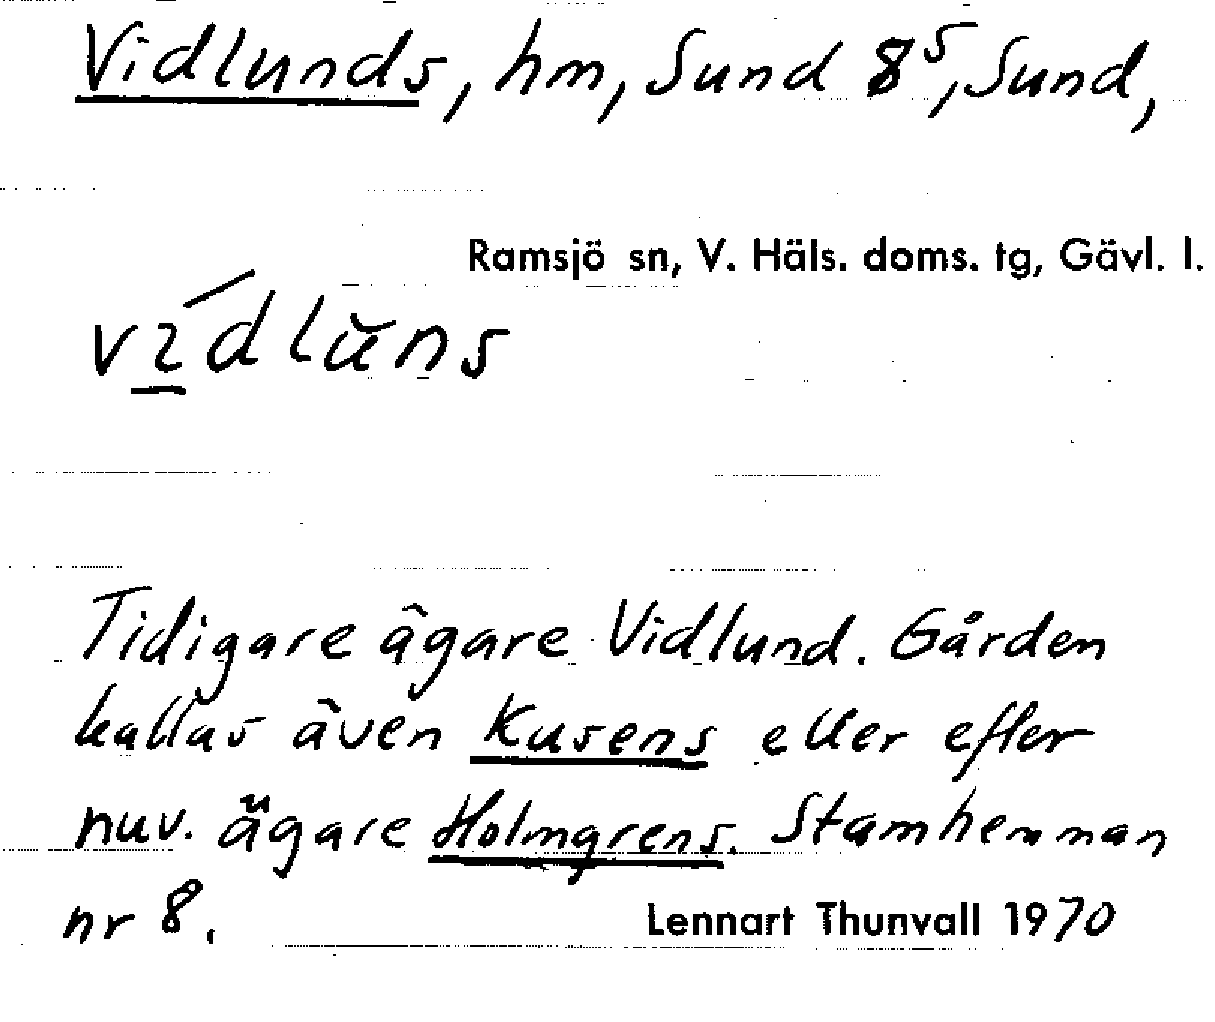 Vidlunds, hm, Sund 8⁵, Sund,
Ramsjö sn, V. Häls. doms. tg, Gävl. l.
vı̲́dlŭns
Tidigare ägare Vidlund. Gården
kallas även Kusens eller efter
nuv. ägare Holmgrens. Stamhemman
nr 8.
Lennart Thunvall 1970